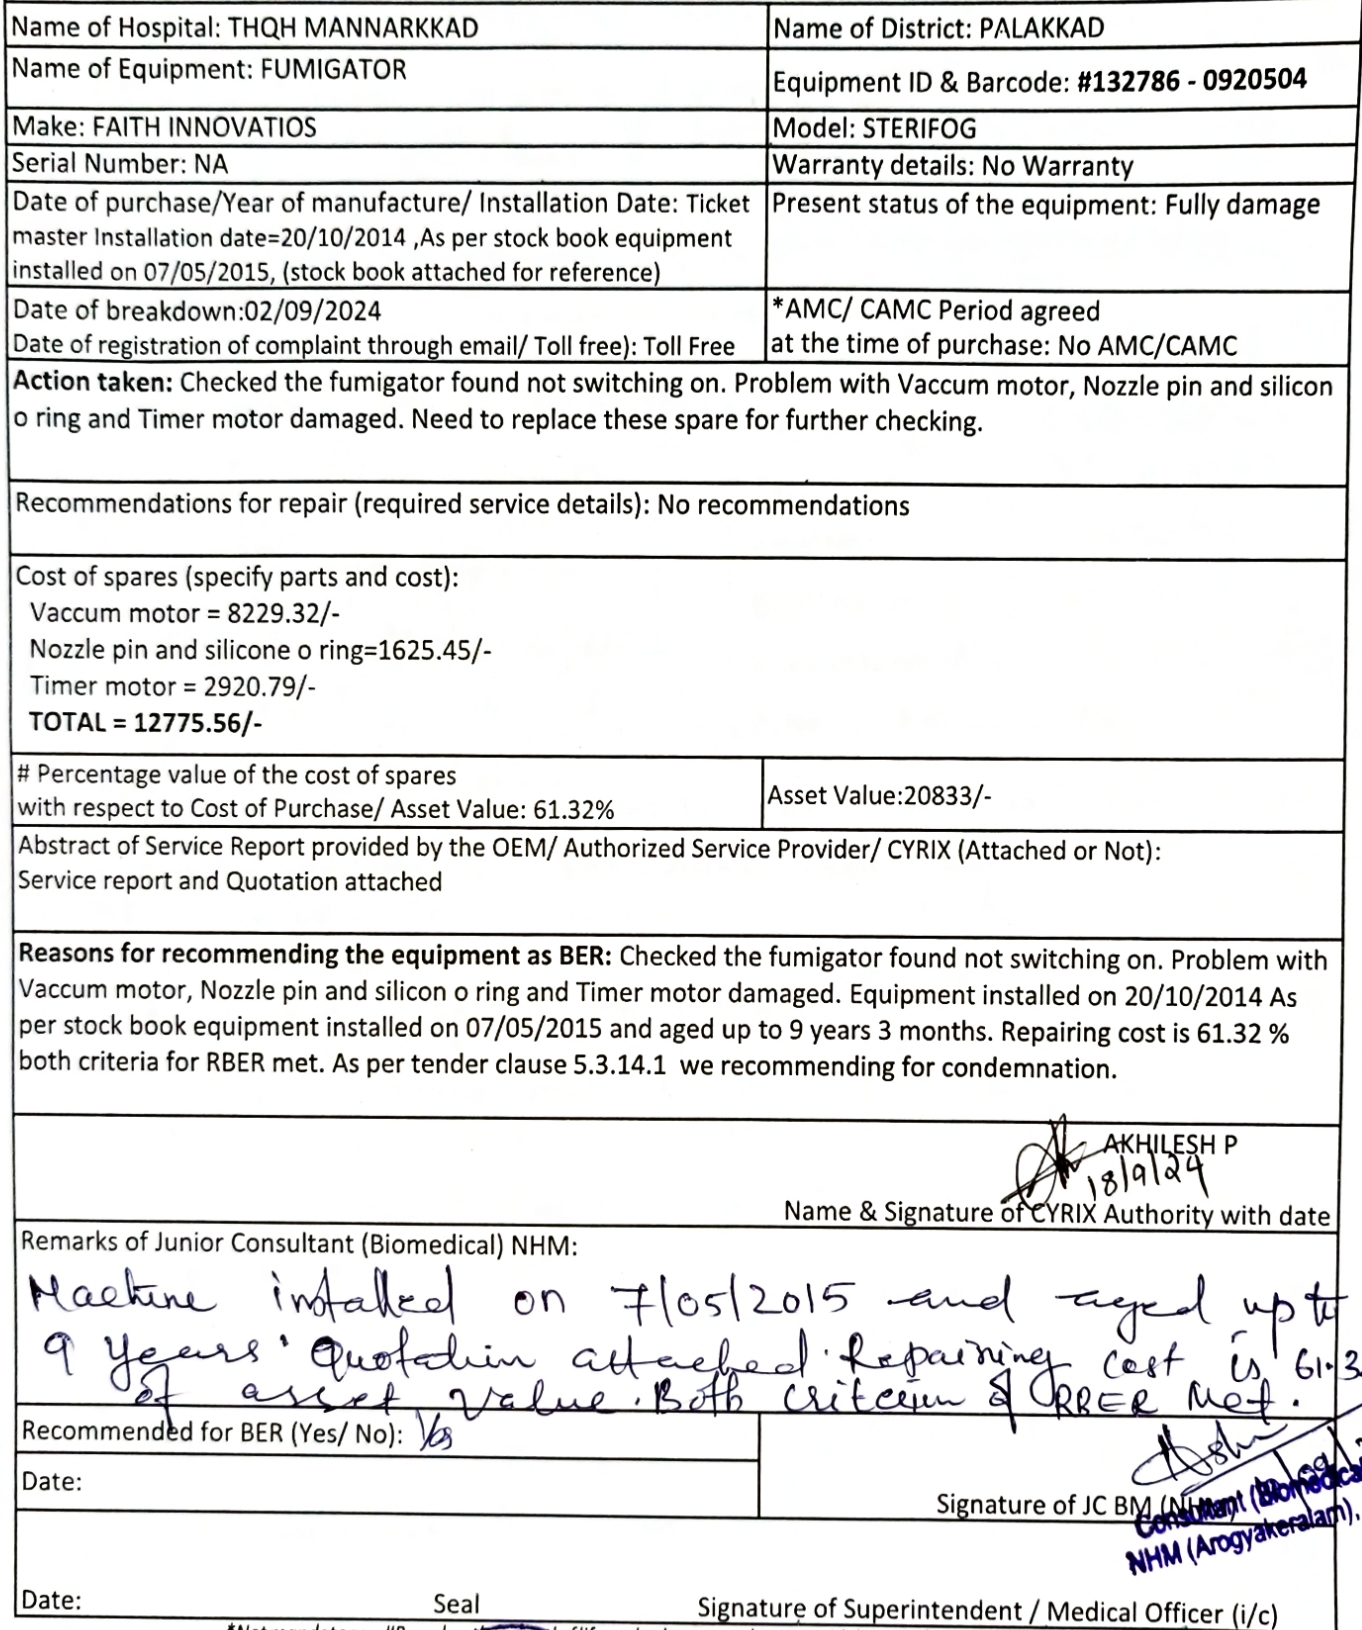 Name of Hospital: THQH MANNARKKAD
Name of District: PALAKKAD
Name of Equipment: FUMIGATOR
Equipment ID & Barcode: #132786 - 0920504
Make: FAITH INNOVATIOS
Model: STERIFOG
Serial Number: NA
Warranty details: No Warranty
Date of purchase/Year of manufacture/ Installation Date: Ticket
master Installation date=20/10/2014 ,As per stock book equipment
installed on 07/05/2015, (stock book attached for reference)
Present status of the equipment: Fully damage
Date of breakdown:02/09/2024
Date of registration of complaint through email/ Toll free): Toll Free
*AMC/ CAMC Period agreed
at the time of purchase: No AMC/CAMC
Action taken: Checked the fumigator found not switching on. Problem with Vaccum motor, Nozzle pin and silicon
o ring and Timer motor damaged. Need to replace these spare for further checking.
Recommendations for repair (required service details): No recommendations
Cost of spares (specify parts and cost):
Vaccum motor = 8229.32/-
Nozzle pin and silicone o ring=1625.45/-
Timer motor = 2920.79/-
TOTAL = 12775.56/-
# Percentage value of the cost of spares
with respect to Cost of Purchase/ Asset Value: 61.32%
Asset Value:20833/-
Abstract of Service Report provided by the OEM/ Authorized Service Provider/ CYRIX (Attached or Not):
Service report and Quotation attached
Reasons for recommending the equipment as BER: Checked the fumigator found not switching on. Problem with
Vaccum motor, Nozzle pin and silicon o ring and Timer motor damaged. Equipment installed on 20/10/2014 As
per stock book equipment installed on 07/05/2015 and aged up to 9 years 3 months. Repairing cost is 61.32 %
both criteria for RBER met. As per tender clause 5.3.14.1 we recommending for condemnation.
AKHILESH P
18/9/24
Name & Signature of CYRIX Authority with date
Remarks of Junior Consultant (Biomedical) NHM:
Machine installed on 7/05/2015 and aged up to
9 years. Quotation attached. Repairing cost is 61.3
of asset value. Both criterium of RBER Met.
Recommended for BER (Yes/ No): Yes
Date:
Signature of JC BM (NHM
Consultant (Biomedical
NHM (Arogyakeralam),
Date:
Seal
Signature of Superintendent / Medical Officer (i/c)